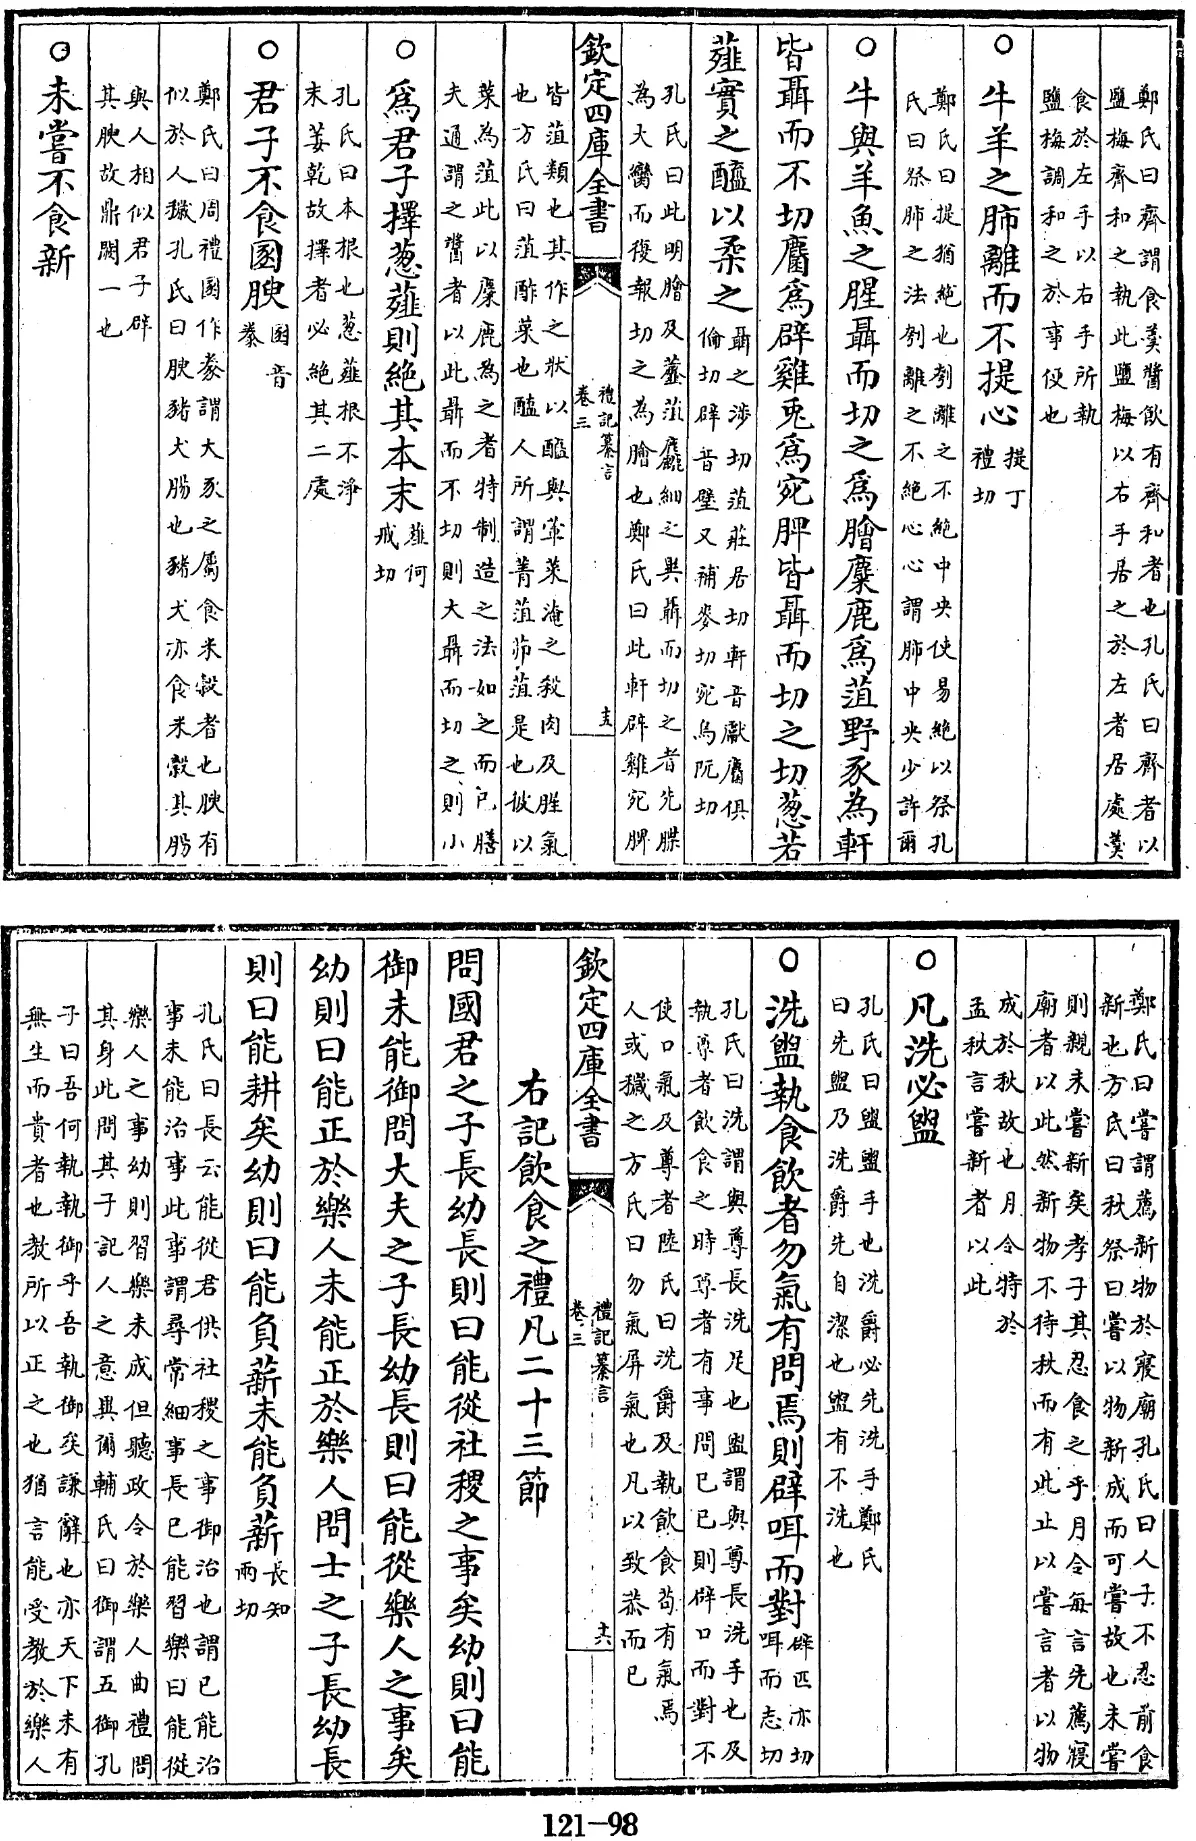 鄭氏曰齊謂食羹醬飲有齊和者也孔氏曰齊者以
鹽梅齊和之執此鹽梅以右手居之於左者居處羹
食於左手以右手所執
鹽梅調和之於事便也
○牛羊之肺離而不提心
提丁
禮切
鄭氏曰提猶絶也刌離之不絶中央使易絶以祭孔
氏曰祭肺之法刌離之不絶心心謂肺中央少許爾
○牛與羊魚之腥聶而切之爲膾麋鹿爲菹野豕為軒
皆聶而不切麕爲辟雞兎爲宛脾皆聶而切之切葱若
薤實之醯以柔之
聶之渉切菹莊居切軒音獻麕俱
倫切辟音壁又補麥切宛烏阮切
孔氏曰此明膾及虀菹麤細之異聶而切之者先牒
為大臠而復報切之為膾也鄭氏曰此軒辟雞宛脾
欽定四庫全書
禮記纂言
卷三
十五
皆菹類也其作之狀以醯與葷菜淹之殺肉及腥氣
也方氏曰菹酢菜也醯人所謂菁菹茆菹是也彼以
菜為菹此以麋鹿為之者特制造之法如之而已膳
夫通謂之醬者以此聶而不切則大聶而切之則小
○爲君子擇葱薤則絶其本末
薤何
戒切
孔氏曰本根也葱薤根不淨
末萎乾故擇者必絶其二處
○君子不食圂腴
圂音
豢
鄭氏曰周禮圂作豢謂犬豕之屬食米穀者也腴有
似於人穢孔氏曰腴豬犬腸也豬犬亦食米穀其腸
與人相似君子辟
其腴故鼎闕一也
○未嘗不食新
鄭氏曰嘗謂薦新物於寢廟孔氏曰人子不忍前食
新也方氏曰秋祭曰嘗以物新成而可嘗故也未嘗
則親未嘗新矣孝子其忍食之乎月令每言先薦寢
廟者以此然新物不待秋而有此止以嘗言者以物
成於秋故也月令特於
孟秋言嘗新者以此
○凡洗必盥
孔氏曰盥盥手也洗爵必先洗手鄭氏
曰先盥乃洗爵先自潔也盥有不洗也
○洗盥執食飲者勿氣有問焉則辟咡而對
辟匹亦切
咡而志切
孔氏曰洗謂與尊長洗足也盥謂與尊長洗手也及
執尊者飲食之時尊者有事問已已則辟口而對不
使口氣及尊者陸氏曰洗爵及執飲食苟有氣焉
人或穢之方氏曰勿氣屏氣也凡以致恭而已
欽定四庫全書
禮記纂言
卷三
十六
右記飲食之禮凡二十三節
問國君之子長幼長則曰能從社稷之事矣幼則曰能
御未能御問大夫之子長幼長則曰能從樂人之事矣
幼則曰能正於樂人未能正於樂人問士之子長幼長
則曰能耕矣幼則曰能負薪未能負薪
長知
兩切
孔氏曰長云能從君供社稷之事御治也謂已能治
事未能治事此事謂尋常細事長已能習樂曰能從
樂人之事幼則習樂未成但聽政令於樂人曲禮問
其身此問其子記人之意異爾輔氏曰御謂五御孔
子曰吾何執執御乎吾執御矣謙辭也亦天下未有
無生而貴者也教所以正之也猶言能受教於樂人
121-98